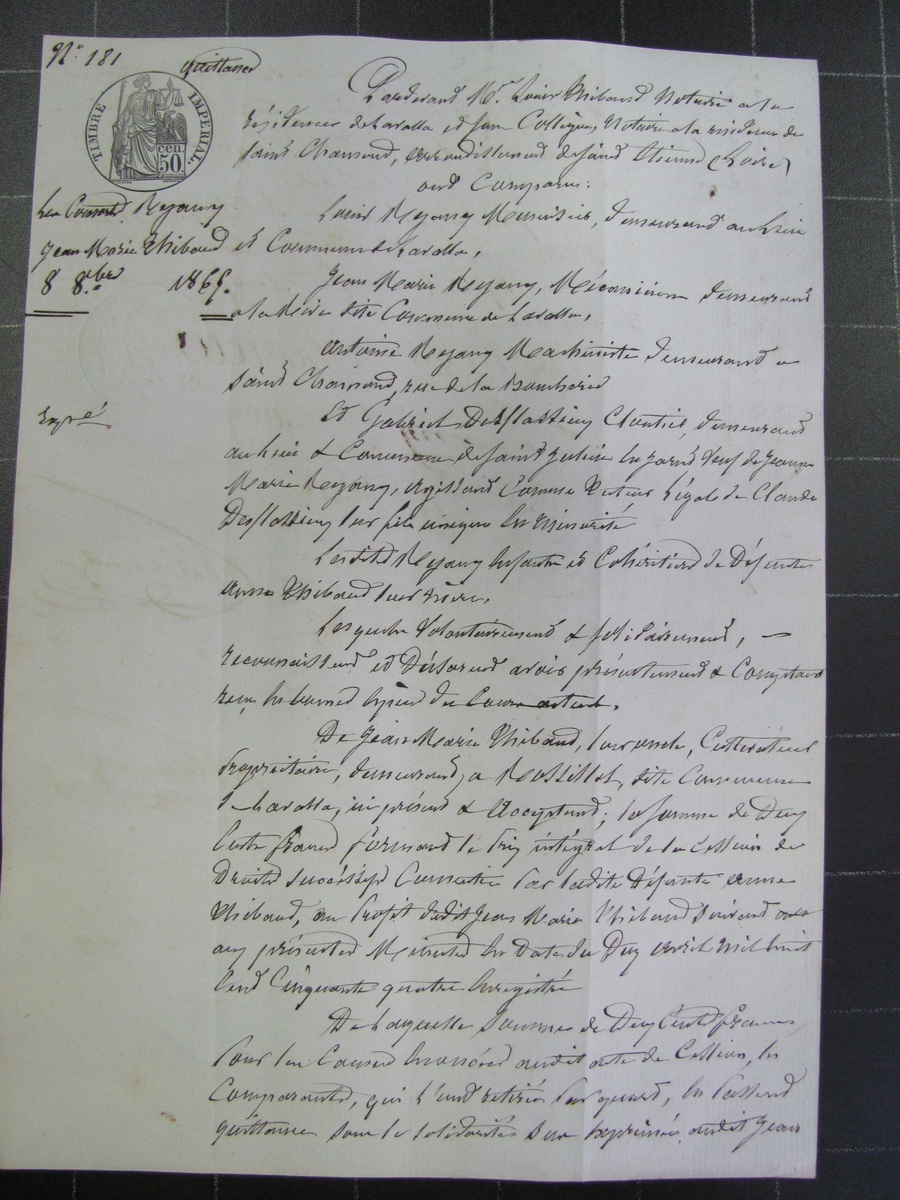 N° 181
quittance
TIMBRE IMPERIAL.
50 cen.
Pardevant Me Louis Thibaud Notaire a la
résidence de Lavalla et son Collègue, Notaire a la résidence de
Saint Chamond, arrondissement de Saint Etienne (Loire)
ont Comparu:
Les Consorts Rejany
Jean Marie Thibaud
8 8.bre 1865.
Louis Rejany Menuisier, demeurant au lieu
et Commune de Lavalla,
Jean Marie Rejany, Mécanicien demeurant
a la dite Commune de Lavalla,
antoine Rejany Machiniste demeurant a
Saint Chamond, rue de la
Expé
Et Gabriel Desflassieux Cloutier, demeurant
au lieu & Commune de Saint Julien en Jarret Veuf de Jeanne
Marie Rejany, agissant Comme tuteur légal de Claude
Desflassieux leur fils unique en minorité
Lesdits Rejany enfants et Cohéritiers de Défunte
anne Thibaud leur mère,
Lesquels Volontairement & solidairement,
reconnaissent et Déclarent avoir présentement & Comptant
reçu en bonnes espèces du Cours actuel,
De Jean Marie Thibaud, leur oncle, Cultivateur
propriétaire, demeurant, a Rossillol, dite Commune
de Lavalla, ici présent & acceptant; la somme de Deux
Cents francs formant le prix intégral de la Cession de
Droits successifs Consentie par ladite Défunte anne
Thibaud, au profit dudit Jean Marie Thibaud suivant acte
aux présentes Minutes en Date du Dix avril mil huit
Cent Cinquante quatre Enregistré
De Laquelle Somme de Deux Cents francs
Pour les Causes énoncées audit acte de Cession, les
Comparants, qui l'ont retirée par quart, en passent
quittance sous la solidarité sus exprimée, audit Jean